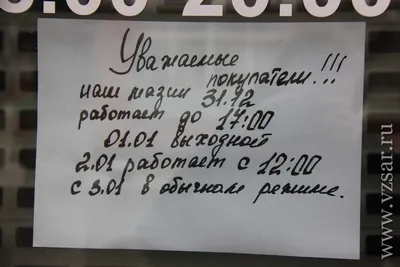 Уважаемые
покупатели!!!
наш мазин 31.12
работает до 17:00
01.01 выходной
2.01 работает с 12:00
с 3.01 в обычном режиме.
www.vzsar.ru